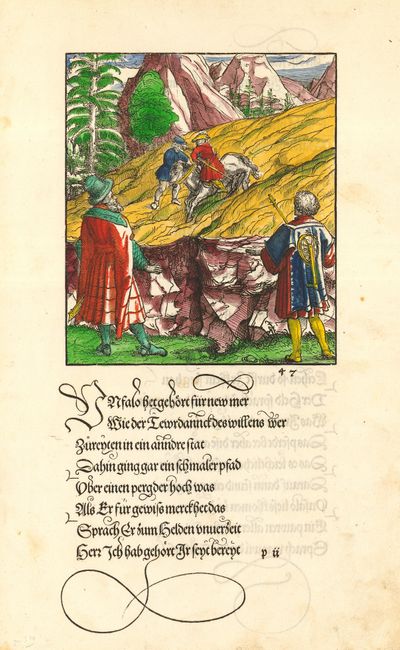 47
VNfalo het gehört für new mer
Wie der Tewrdannck des willens wer
Zůreyten in ein anndre stat
Dahin ging gar ein schmaler pfad
Vber einen perg der hoch was
Als Er für gewiss merckhet das
Sprach Er zům Helden vnuerzeit
Herr Ich hab gehört Ir seyt bereyt p ii